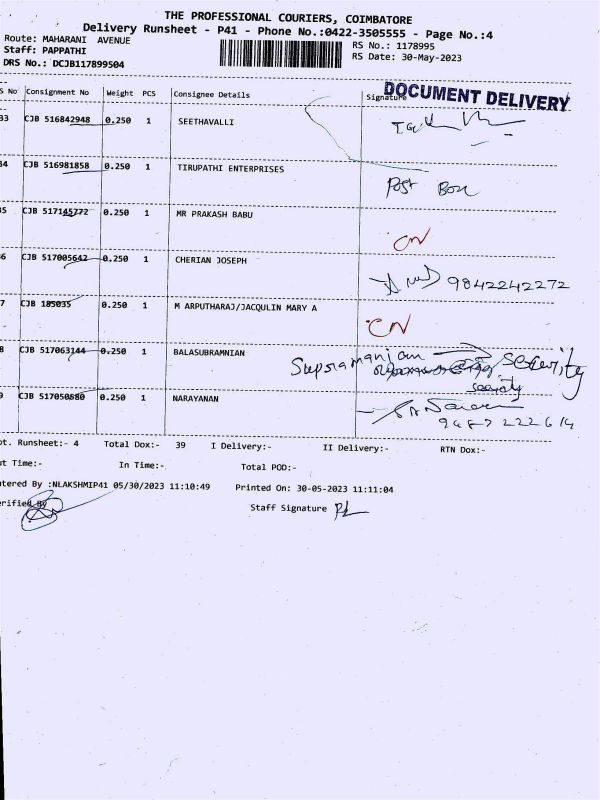 THE PROFESSIONAL COURIERS, COIMBATORE
Delivery Runsheet - P41 - Phone No.:0422-3505555 - Page No.:4
Route: MAHARANI AVENUE
RS No.: 1178995
Staff: PAPPATHI
RS Date: 30-May-2023
DRS No.: DCJB117899504
DOCUMENT DELIVERY
S No Consignment No Weight PCS Consignee Details Signature
33 CJB 516842948 0.250 1 SEETHAVALLI
34 CJB 516981858 0.250 1 TIRUPATHI ENTERPRISES
Post Box
35 CJB 517145772 0.250 1 MR PRAKASH BABU
CN
36 CJB 517005642 0.250 1 CHERIAN JOSEPH
9842242272
37 CJB 185035 0.250 1 M ARPUTHARAJ/JACQULIN MARY A
CN
38 CJB 517063144 0.250 1 BALASUBRAMNIAN
Supramanian security
security
39 CJB 517050580 0.250 1 NARAYANAN
pt. Runsheet:- 4 Total Dox:- 39 I Delivery:- II Delivery:- RTN Dox:-
ut Time:- In Time:- Total POD:-
ntered By :NLAKSHMIP41 05/30/2023 11:10:49 Printed On: 30-05-2023 11:11:04
erified By
Staff Signature